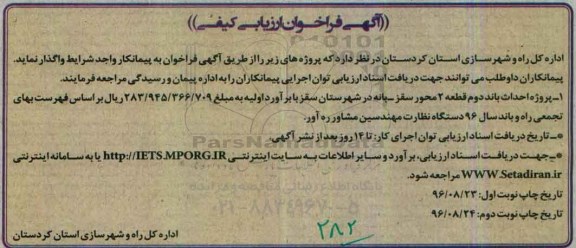 ((آگهی فراخوان ارزیابی کیفی))
اداره کل راه و شهرسازی استان کردستان در نظر دارد که پروژه های زیر را از طریق آگهی فراخوان به پیمانکار واجد شرایط واگذار نماید.
پیمانکاران داوطلب می توانند جهت دریافت اسناد ارزیابی توان اجرایی پیمانکاران را به اداره پیمان و رسیدگی مراجعه فرمایند.
۱-پروژه احداث باند دوم قطعه ۲ محور سقز -بانه در شهرستان سقز با برآورد اولیه به مبلغ ۲۸۳/۹۴۵/۳۶۶/۷۰۹ ریال بر اساس فهرست بهای
تجمعی راه و باند سال ۹۶ دستگاه نظارت مهندسین مشاور ره آور.
*-تاریخ دریافت اسناد ارزیابی توان اجرای کار: تا ۱۴ روز بعد از نشر آگهی.
*-جهت دریافت اسناد ارزیابی، برآورد و سایر اطلاعات به سایت اینترنتی http://IETS.MPORG.IR یا به سامانه اینترنتی
WWW.Setadiran.ir مراجعه شود.
تاریخ چاپ نوبت اول: ۹۶/۰۸/۲۳
تاریخ چاپ نوبت دوم: ۹۶/۰۸/۲۴
۲۸۲
اداره کل راه و شهرسازی استان کردستان
ParsNamadData
۰۲۱-۸۸۳۴۹۶۷۰-۵